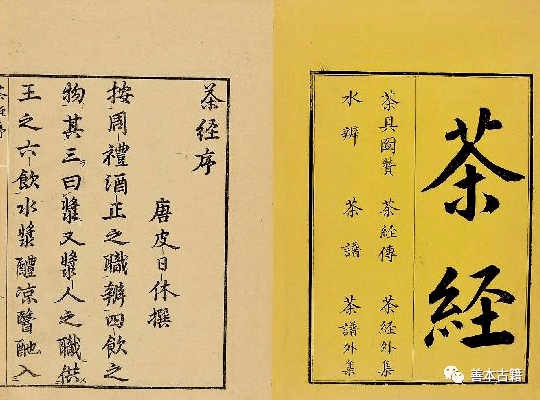 茶經
茶具圖贊 茶經傳 茶經外集
水辨 茶譜 茶譜外集
茶經序
唐皮日休撰
按周禮酒正之職辨四飲之
物其三曰漿又漿人之職供
王之六飲水漿醴涼醫酏入
善本古籍